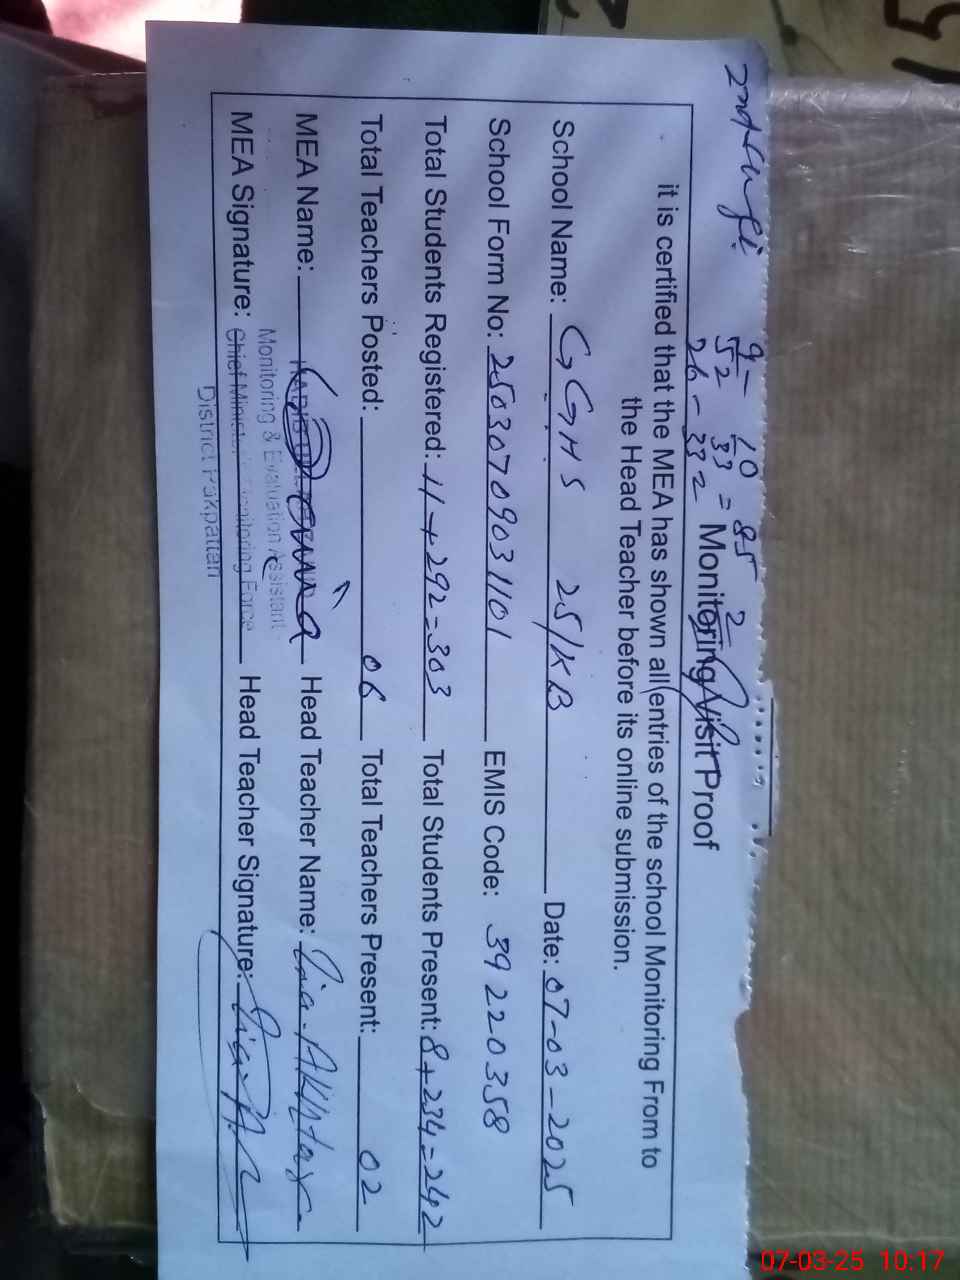 9 - 10 = 85
52 33 2
26 - 33 2
Monitoring Visit Proof
it is certified that the MEA has shown all entries of the school Monitoring From to
the Head Teacher before its online submission.
School Name: GGHS 25/KB Date: 07-03-2025
School Form No: 2503070903 1101 EMIS Code: 39220358
Total Students Registered: 11+292=303 Total Students Present: 8+234=242
Total Teachers Posted: 06 Total Teachers Present: 02
MEA Name: Head Teacher Name: Akhtar
Monitoring & Evaluation Assistant
MEA Signature: Chief Minister's Monitoring Force Head Teacher Signature:
District Pakpattan
15
07-03-25 10:17